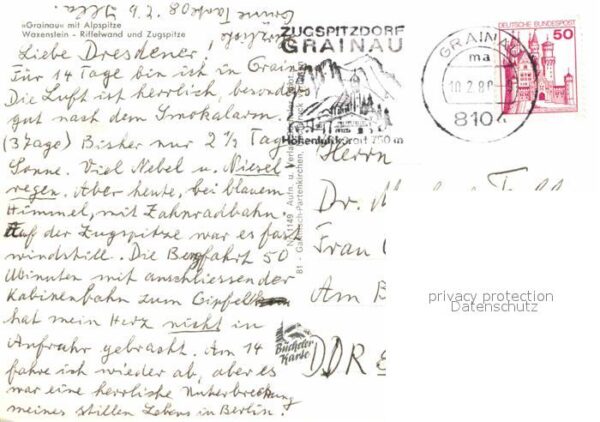 »Grainau« mit Alpspitze
Waxenstein - Riffelwand und Zugspitze
Liebe Dresdener,
Für 14 Tage bin ich in Grainau
Die Luft ist herrlich, besonders
gut nach dem Smokalarm.
(3 Tage) Bisher nur 2 1/2 Tag
Sonne. Viel Nebel u. Niesel
regen. Aber heute, bei blauem
Himmel, mit Zahnradbahn.
Auf der Zugspitze war es fast
windstill. Die Bergfahrt 50
Minuten mit anschliessender
Kabinenbahn zum Gipfel
hat mein Herz nicht in
Aufruhr gebracht. Am 14
fahre ich wieder ab, aber es
war eine herrliche Unterbrechung
meines stillen Lebens in Berlin.
ZUGSPITZDORF
GRAINAU
Höhenluftkurort 750 m
GRAINAU
ma
10.2.8
810
DEUTSCHE BUNDESPOST
50
Nr. 1149 Aufn. u. Verlag
81 - Garmisch-Partenkirchen,
Herrn
Dr.
Frau
Am B
DDR
Büttner
Karte
privacy protection
Datenschutz